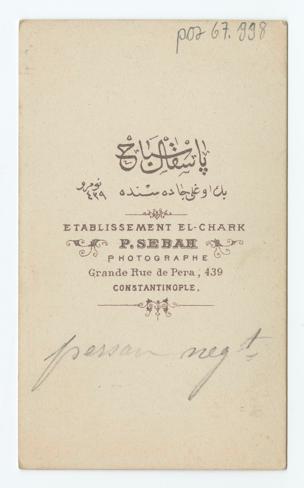 poz 67.998
پاسقال صباح
بك اوغلی جاده سنده نومرو ٤٣٩
ETABLISSEMENT EL-CHARK
P. SEBAH
PHOTOGRAPHE
Grande Rue de Pera, 439
CONSTANTINOPLE.
persan negt